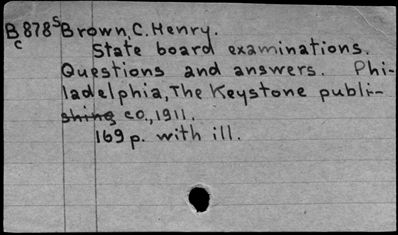 B878S Brown, C. Henry.
c State board examinations.
Questions and answers. Phi-
ladelphia, The Keystone publi-
shing co., 1911.
169 p. with ill.